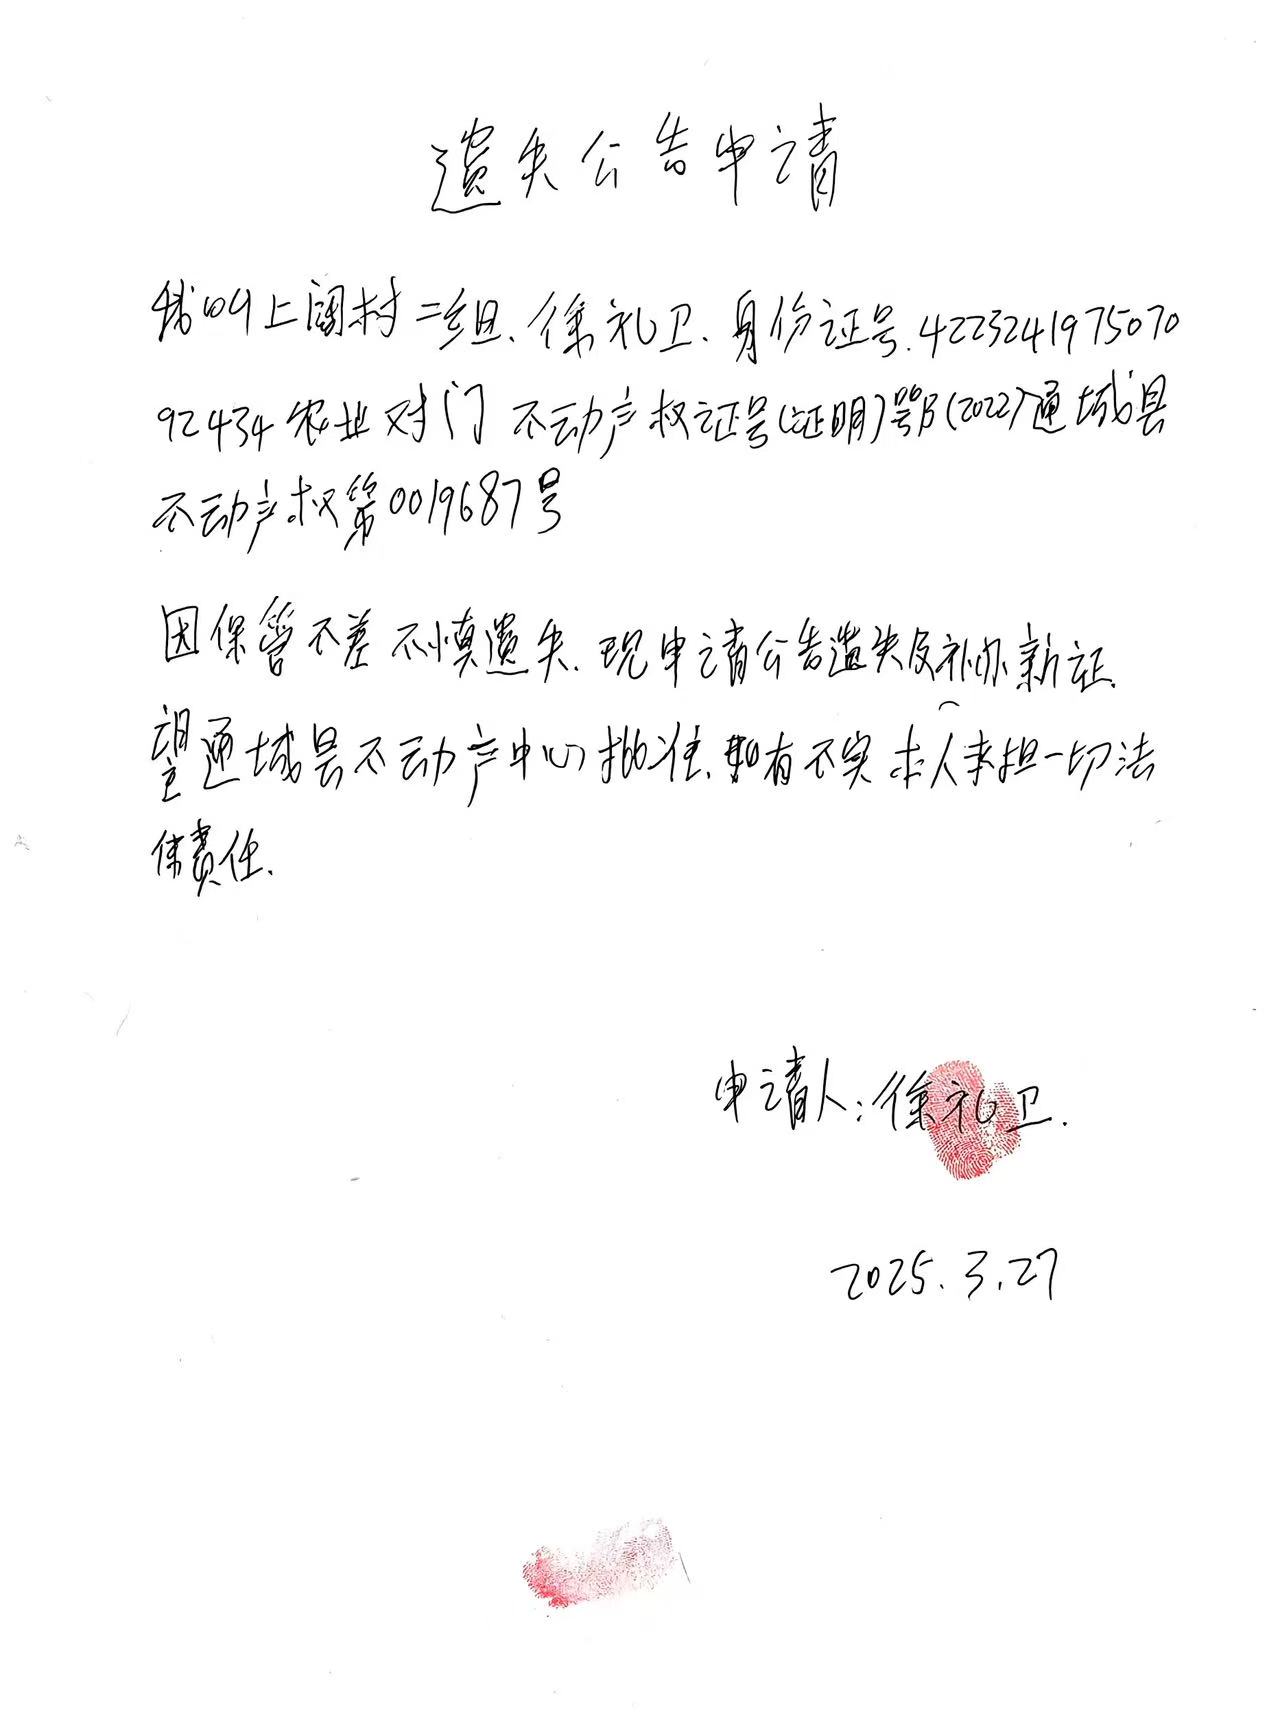 遗失公告申请
我叫上阔村二组、徐礼卫、身份证号.4223241975070
92434农业对门 不动产权证号(证明)鄂(2022)通城县
不动产权第0019687号
因保管不差不慎遗失.现申请公告遗失及补办新证.
望通城县不动产中心批准.如有不实 本人承担一切法
律责任.
申请人:徐礼卫.
2025.3.27